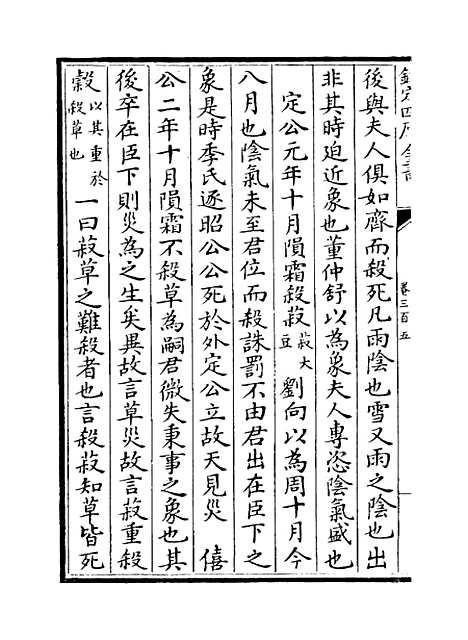 欽定四庫全書
卷三百五
後與夫人俱如齊而殺死凡雨陰也雪又雨之陰也出
非其時迫近象也董仲舒以為象夫人專恣陰氣盛也
定公元年十月隕霜殺菽菽大豆劉向以為周十月今
八月也陰氣未至君位而殺誅罰不由君出在臣下之
象是時季氏逐昭公公死於外定公立故天見災 僖
公二年十月隕霜不殺草為嗣君微失秉事之象也其
後卒在臣下則災為之生矣異故言草災故言菽重殺
糓以其重於殺草也一曰菽草之難殺者也言殺菽知草皆死